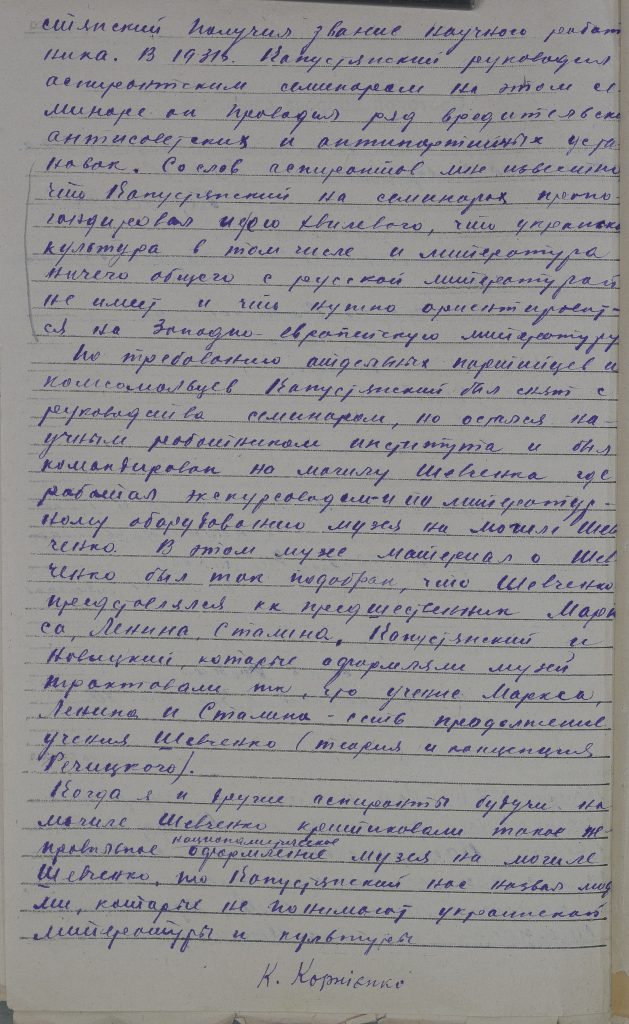 стянский получил звание научного работ
ника. В 1931г. Капустянский руководил
аспирантским семинаром на этом се-
минаре он проводил ряд вредительски
антисоветских и антипартийных уста
новок. Со слов аспирантов мне известно
что Капустянский на семинарах пропо-
гандировал идею Хвилевого, что украинск
культура в том числе и литература
ничего общего с русской литературой
не имеет и что нужно ориентироват-
ся на Западно-европейскую литературу
По требованию отдельных партийцев и
комсомольцев Капустянский был снят с
руководства семинаром, но остался на-
учным работником института и был
командирован на могилу Шевченка где
работал экскурсоводом и по литератур-
ному оборудованию музея на могиле Шев
ченко. В этом музе материал о Шев
ченко был так подобран, что Шевченко
представлялся как предшественник Марк
са, Ленина, Сталина. Капустянский и
Новицкий, которые оформляли музей
трактовали так, что учение Маркса,
Ленина и Сталина - есть продолжение
учения Шевченко (теория и концепция
Речицкого).
Когда я и другие аспиранты будучи на
могиле Шевченко критиковали такое не-
правильное националистическое оформление музея на могиле
Шевченко, то Капустянский нас назвал людь
ми, которые не понимают украинской
литературы и культуры
К. Корнієнко